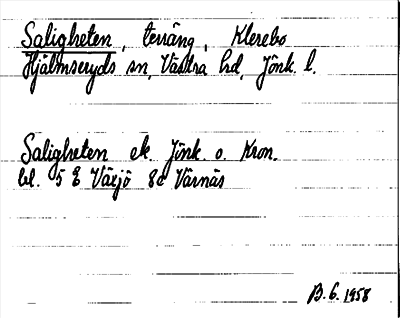 Saligheten, terräng, Klerebo
Hjälmseryds sn, Västra hd, Jönk. l.
Saligheten ek. Jönk. o. Kron.
bl. 5 E Växjö 8c Värnäs
B. G. 1958